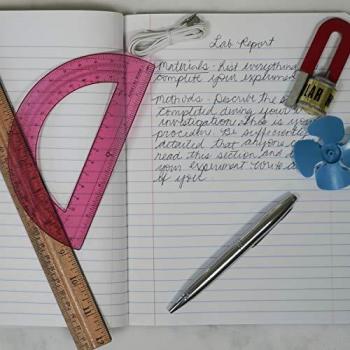 Lab Report
Materials - List everything
complete your experiment
Methods - Describe the
completed during your
investigation. This is your
procedure. Be sufficiently
detailed that anyone
read this section and
your experiment. Write
of you.
LAB
9
10
11
12